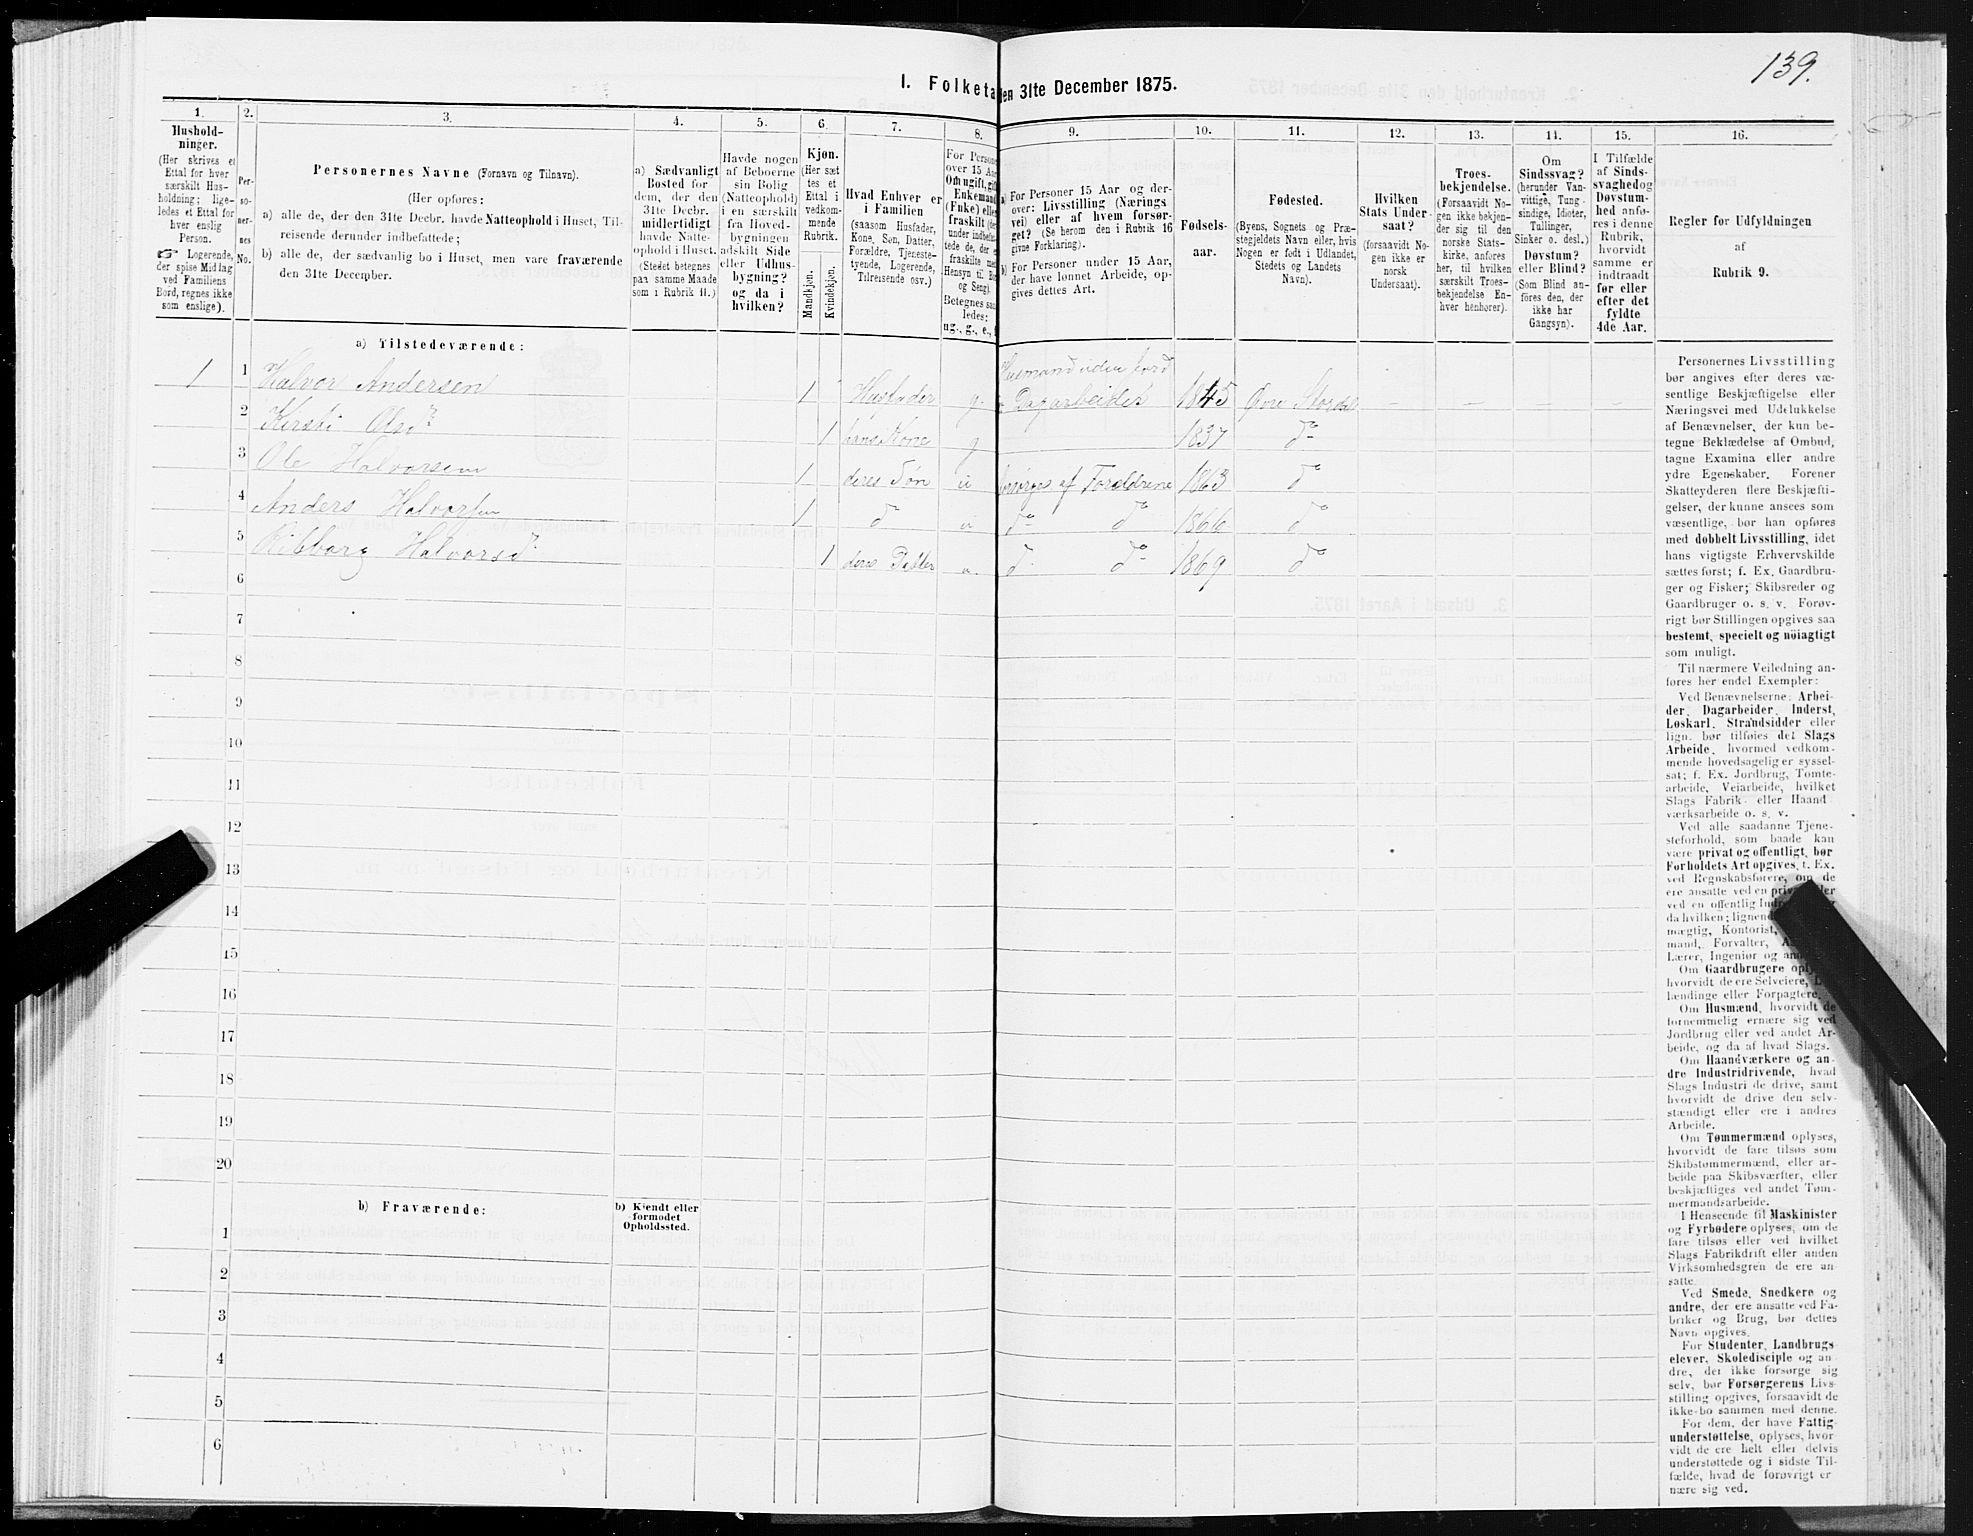 139.
I. Folketa
den 31te December 1875.
1.
2.
3.
4.
5.
6.
7.
8.
9.
10.
11.
12.
13.
14.
15.
16.
Hushold-
ninger.
(Her skrives et
Ettal for hver
særskilt Hus-
holdning; lige-
ledes et Ettal for
hver enslig
Person.
☞ Logerende,
der spise Middag
ved Familiens
Bord, regnes ikke
som enslige).
Per-
so-
ner-
nes
No.
Personernes Navne (Fornavn og Tilnavn).
(Her opføres:
a) alle de, der den 31te Decbr. havde Natteophold i Huset, Til-
reisende derunder indbefattede;
b) alle de, der sædvanlig bo i Huset, men vare fraværende
den 31te December.
a) Sædvanligt
Bosted for
dem, der den
31te Decbr.
midlertidigt
havde Natte-
ophold i Huset.
(Stedet betegnes
paa samme Maade
som i Rubrik 11.)
Havde nogen
af Beboerne
sin Bolig
(Natteophold)
i en særskilt
fra Hoved-
bygningen
adskilt Side
eller Udhus-
bygning?
og da i
hvilken?
Kjøn.
(Her sæt
tes et
Ettal i
vedkom-
mende
Rubrik.
Mandkjøn.
Kvindekjøn.
Hvad Enhver er
i Familien
(saasom Husfader,
Kone, Søn, Datter,
Forældre, Tjeneste-
tyende, Logerende,
Tilreisende osv.)
For Persone
over 15 Aa
Om ugift, gif
Enkemand
(Enke) elle
fraskilt (de
under indbefat-
tede de, der e
fraskilte med
Hensyn til Bo
og Seng).
Betegnes saa
ledes:
ug., g., e., f
a) For Personer 15 Aar og der-
over: Livsstilling (Nærings
vei) eller af hvem forsør-
get? (Se herom den i Rubrik 16
givne Forklaring).
b) For Personer under 15 Aar,
der have lønnet Arbeide, op-
gives dettes Art.
Fødsels-
aar.
Fødested.
(Byens, Sognets og Præ-
stegjeldets Navn eller, hvis
Nogen er født i Udlandet,
Stedets og Landets
Navn).
Hvilken
Stats Under-
saat?
(forsaavidt No-
gen ikke er
norsk
Undersaat).
Troes-
bekjendelse.
(Forsaavidt No-
gen ikke bekjen-
der sig til den
norske Stats-
kirke, anføres
her, til hvilken
særskilt Troes-
bekjendelse En-
hver henhører).
Om
Sindssvag?
(herunder Van-
vittige, Tung-
sindige, Idioter,
Tullinger,
Sinker o. desl.)
Døvstum?
eller Blind?
(Som Blind an-
føres den, der
ikke har
Gangsyn).
I Tilfælde
af Sinds-
svaghed og
Døvstum-
hed anfø-
res i denne
Rubrik,
hvorvidt
samme er
indtraadt
før eller
efter det
fyldte
4de Aar.
Regler for Udfyldningen
af
Rubrik 9.
a) Tilstedeværende:
1 1 Halvor Andersen 1 Husfader g. Husmand uden Jord
Dagarbeider 1845 Øvre Stordal – – – –
2 Kirsti Olsd 1 hans Kone g 1837 do
3 Ole Halvorsen 1 deres Søn u forsørges af Forældrene 1863 do
4 Anders Halvorsen 1 do u do do 1866 do
5 Halvorsd 1 deres Datter u. do do 1869 do
6
7
8
9
10
11
12
13
14
15
16
17
18
19
20
b) Fraværende:
b) Kjendt eller
formodet
Opholdssted.
1
2
3
4
5
6
Personernes Livsstilling
bør angives efter deres væ-
sentlige Beskjæftigelse eller
Næringsvei med Udelukkelse
af Benævnelser, der kun be-
tegne Beklædelse af Ombud,
tagne Examina eller andre
ydre Egenskaber. Forener
Skatteyderen flere Beskjæfti-
gelser, der kunne ansees som
væsentlige, bør han opføres
med dobbelt Livsstilling, idet
hans vigtigste Erhvervskilde
sættes først; f. Ex. Gaardbru-
ger og Fisker; Skibsreder og
Gaardbruger o. s. v. Forøv-
rigt bør Stillingen opgives saa
bestemt, specielt og nöiagtigt
som muligt.
Til nærmere Veiledning an-
føres her endel Exempler:
Ved Benævnelserne: Arbei-
der, Dagarbeider, Inderst,
Løskarl, Strandsidder eller
lign. bør tilføies det Slags
Arbeide, hvormed vedkom-
mende hovedsagelig er syssel-
sat; f. Ex. Jordbrug, Tomte-
arbeide, Veiarbeide, hvilket
Slags Fabrik- eller Haand-
værksarbeide o. s. v.
Ved alle saadanne Tjene-
steforhold, som baade kan
være privat og offentligt, bør
Forholdets Art opgives, f. Ex.
ved Regnskabsførere, om de
ere ansatte ved en
ved en offentlig
da hvilken;
mægtig, Kontorist,
mand, Forvalter,
Lærer, Ingeniør og
Om Gaardbrugere
hvorvidt de ere Selveiere,
lændinge eller Forpagtere.
Om Husmænd, hvorvidt de
fornemmelig ernære sig ved
Jordbrug eller ved andet Ar-
beide, og da af hvad Slags.
Om Haandværkere og an-
dre Industridrivende, hvad
Slags Industri de drive, samt
hvorvidt de drive den selv-
stændigt eller ere i andres
Arbeide.
Om Tømmermænd oplyses,
hvorvidt de fare tilsøs som
Skibstømmermænd, eller ar-
beide paa Skibsværfter, eller
beskjæftiges ved andet Tøm-
mermandsarbeide.
I Henseende til Maskinister
og Fyrbødere oplyses, om de
fare tilsøs eller ved hvilket
Slags Fabrikdrift eller anden
Virksomhedsgren de ere an-
satte.
Ved Smede, Snedkere og
andre, der ere ansatte ved Fa-
briker og Brug, bør dettes
Navn opgives.
For Studenter, Landbrugs-
elever, Skoledisciple og an-
dre, der ikke forsørge sig
selv, bør Forsørgerens Livs-
stilling opgives, forsaavidt de
ikke bo sammen med denne.
For dem, der have Fattig-
understøttelse, oplyses, hvor-
vidt de ere helt eller delvis
understøttede og i sidste Til-
fælde, hvad de forøvrigt er
nære sig ved.